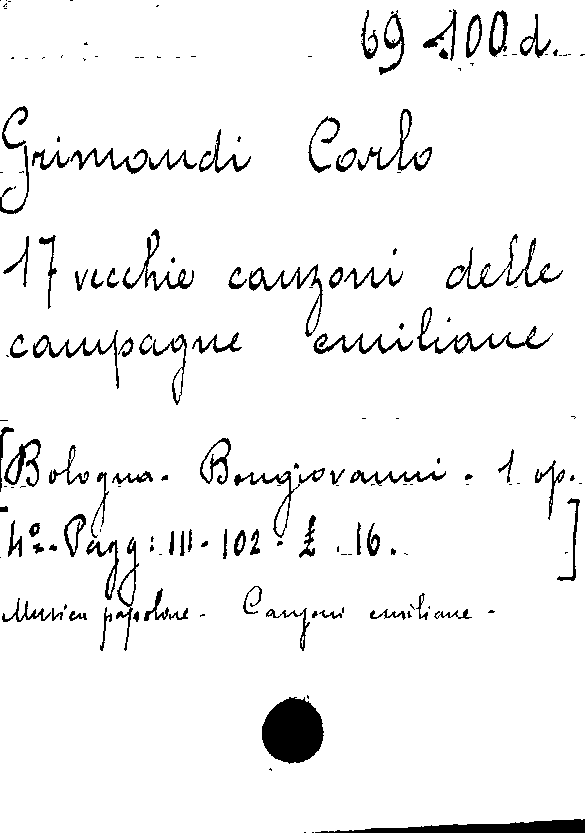 69 100.d.
Grimandi Carlo
17 vecchie canzoni delle
campagne emiliane
[Bologna. Bongiovanni. 1 op.
4º. Pagg: III-102- £. 16.]
Musica popolare. Canzoni emiliane.